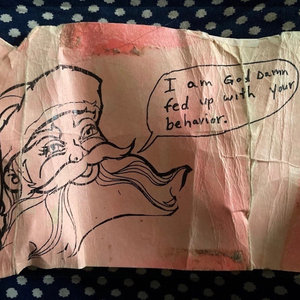 I am God Damn
fed up with your
behavior.